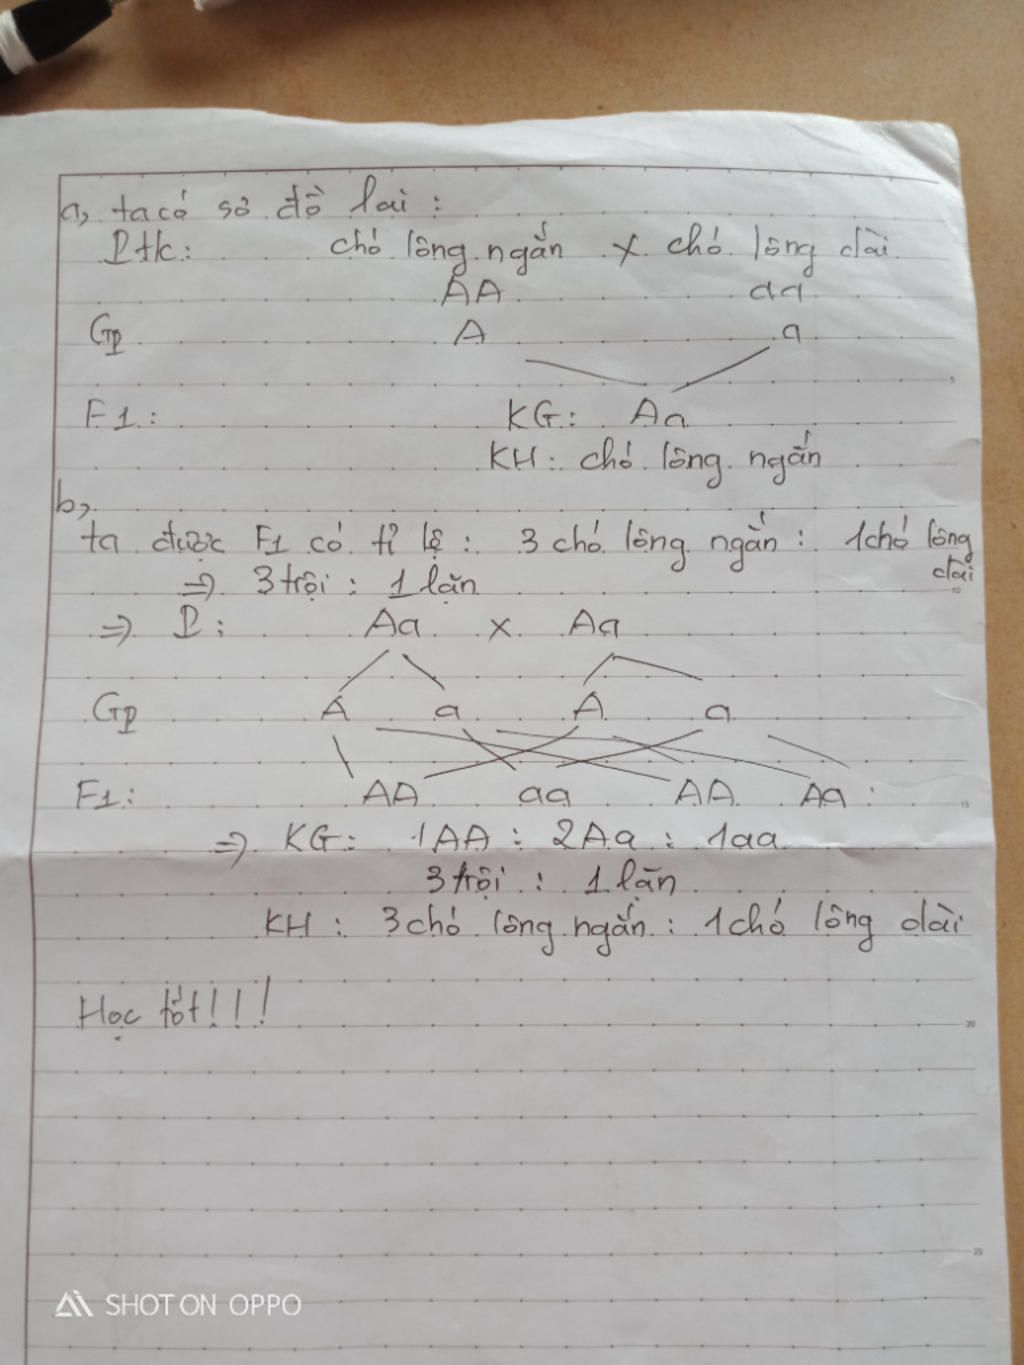 a, ta có sơ đồ lai :
Ptc: chó lông ngắn x chó lông dài
AA aa
Gp A a
F1: KG: Aa
KH: chó lông ngắn
b,
ta được F1 có tỉ lệ : 3 chó lông ngắn : 1 chó lông
dài
=> 3 trội : 1 lặn
=> P: Aa x Aa
Gp A a A a
F1: AA aa AA Aa
=> KG: 1AA : 2Aa : 1aa
3 trội : 1 lặn
KH: 3 chó lông ngắn : 1 chó lông dài
Học tốt!!!
5
10
15
20
25
SHOT ON OPPO